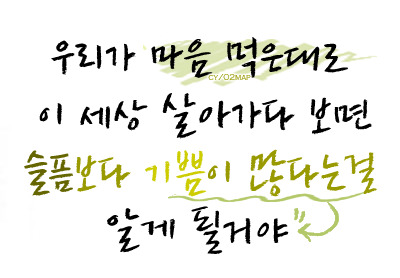 우리가 마음 먹은대로
CY/O2MAP
이 세상 살아가다 보면
슬픔보다 기쁨이 많다는걸
알게 될거야